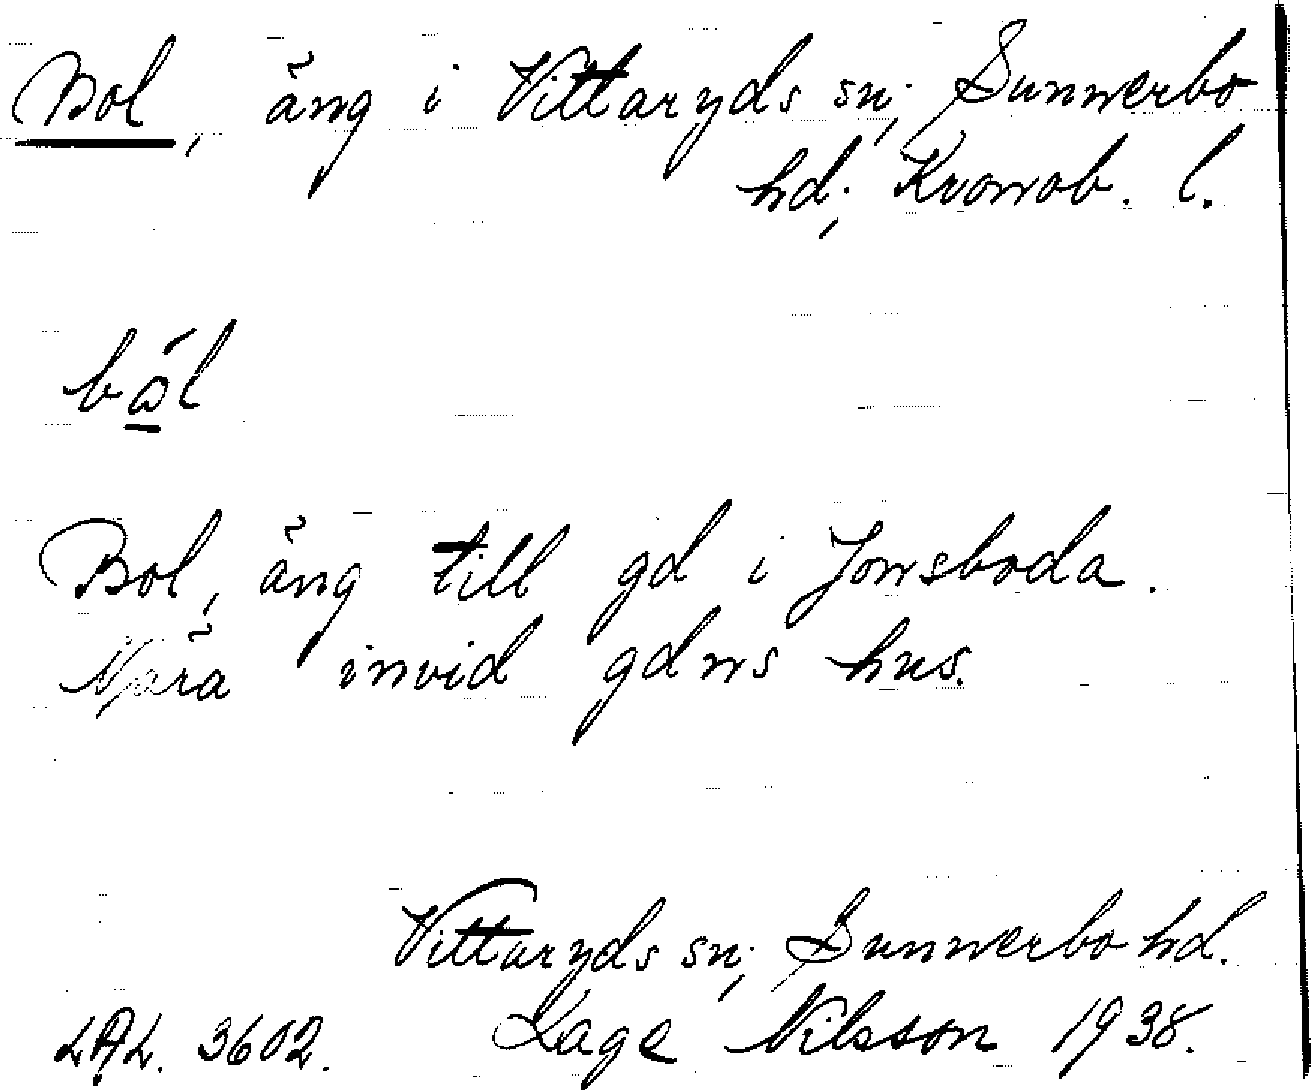 Bol, äng i Vittaryds sn; Sunnerbo
hd; Kronob. l.
bo̲´l
Bol, äng till gd i Jonsboda.
Nära invid gdns hus.
Vittaryds sn; Sunnerbo hd.
LAL. 3602. Kage Nilsson 1938.